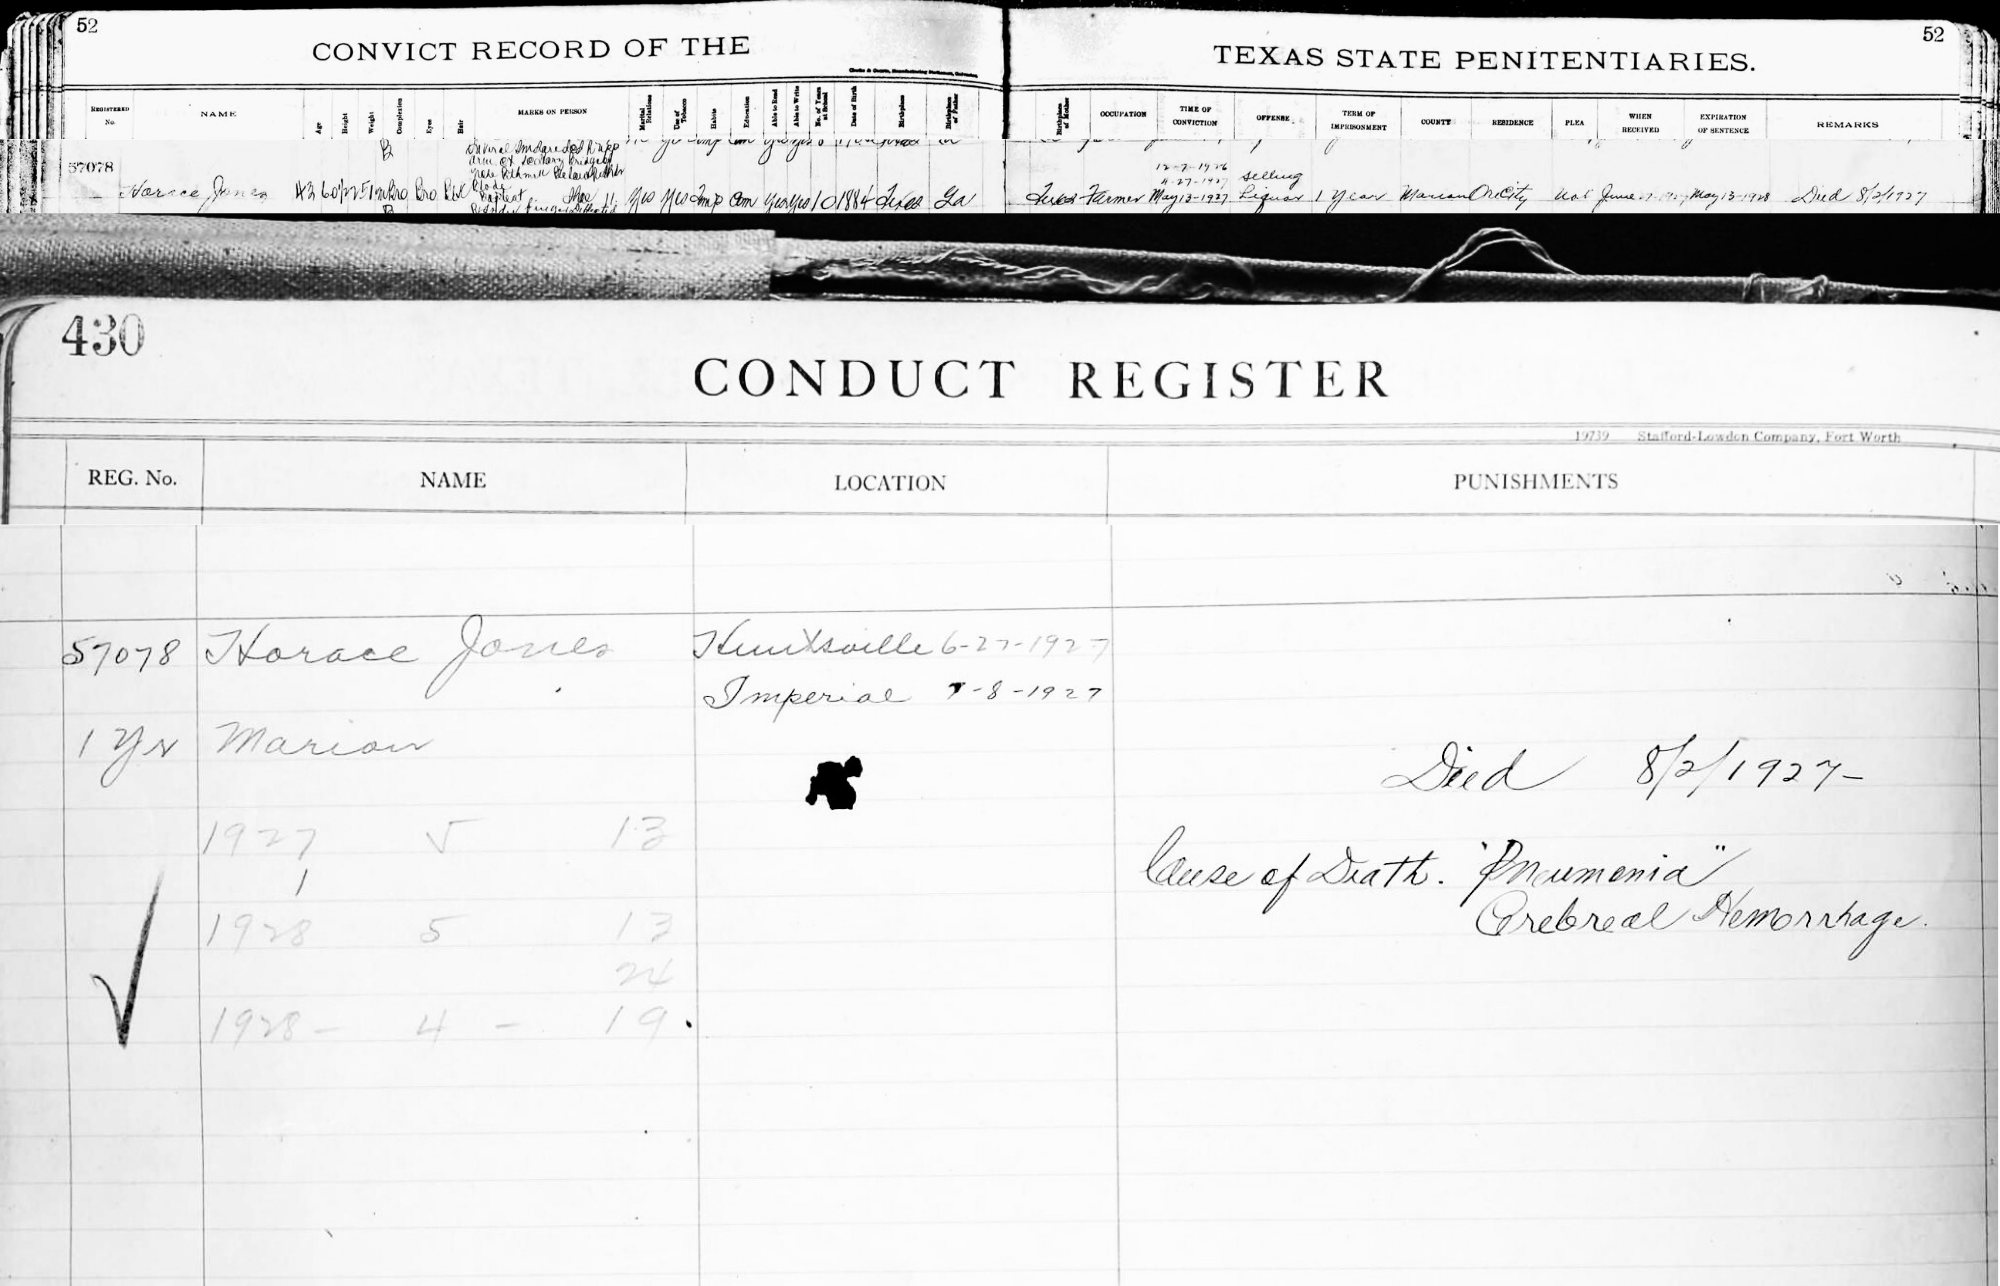 52
CONVICT RECORD OF THE
TEXAS STATE PENITENTIARIES.
52
REGISTERED No. NAME Age Height Weight Complexion Eyes Hair MARKS ON PERSON Marital Relations Use of Tobacco Habits Education Able to Read Able to Write No. of Years at School Date of Birth Birthplace Birthplace of Father Birthplace of Mother OCCUPATION TIME OF CONVICTION OFFENSE TERM OF IMPRISONMENT COUNTY RESIDENCE PLEA WHEN RECEIVED EXPIRATION OF SENTENCE REMARKS
57078
12-7-1926
4-27-1927 Selling
Horace Jones 43 Bro Bro Blk Yes Yes Imp Com Yes Yes 10 1884 Texas Ga Texas Farmer May 13-1927 Liquor 1 Year Marion Ore City Not June May 13-1928 Died 8/2/1927
430
CONDUCT REGISTER
19739 Stafford-Lowdon Company, Fort Worth
REG. No. NAME LOCATION PUNISHMENTS
57078 Horace Jones Huntsville 6-27-1927
Imperial 7-8-1927
1 Yr Marion
Died 8/2/1927-
1927 5 13
Cause of Death. "Pneumonia"
1
1928 5 13
Cerebreal Hemorrhage.
24
1928 - 4 - 19